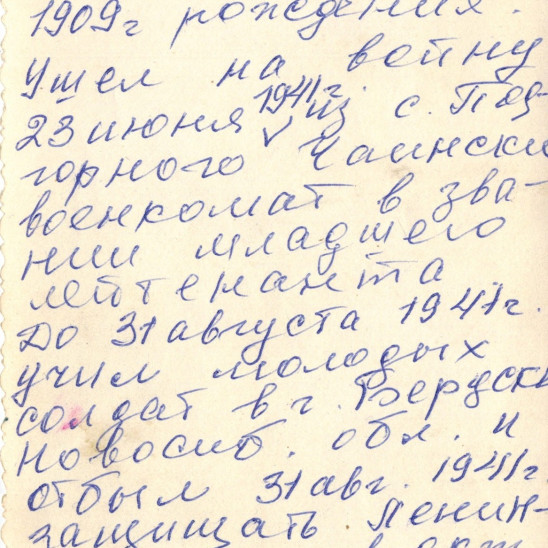 1909г рождения.
Ушел на войну
23 июня 1941г. из с. Под-
горного Чаински
военкомат в зва-
нии младшего
лейтенанта
До 31 августа 1941г.
учил молодых
солдат в г. Бердск
Новосиб. обл. и
отбыл 31 авг. 1941г.
защищать Ленин-